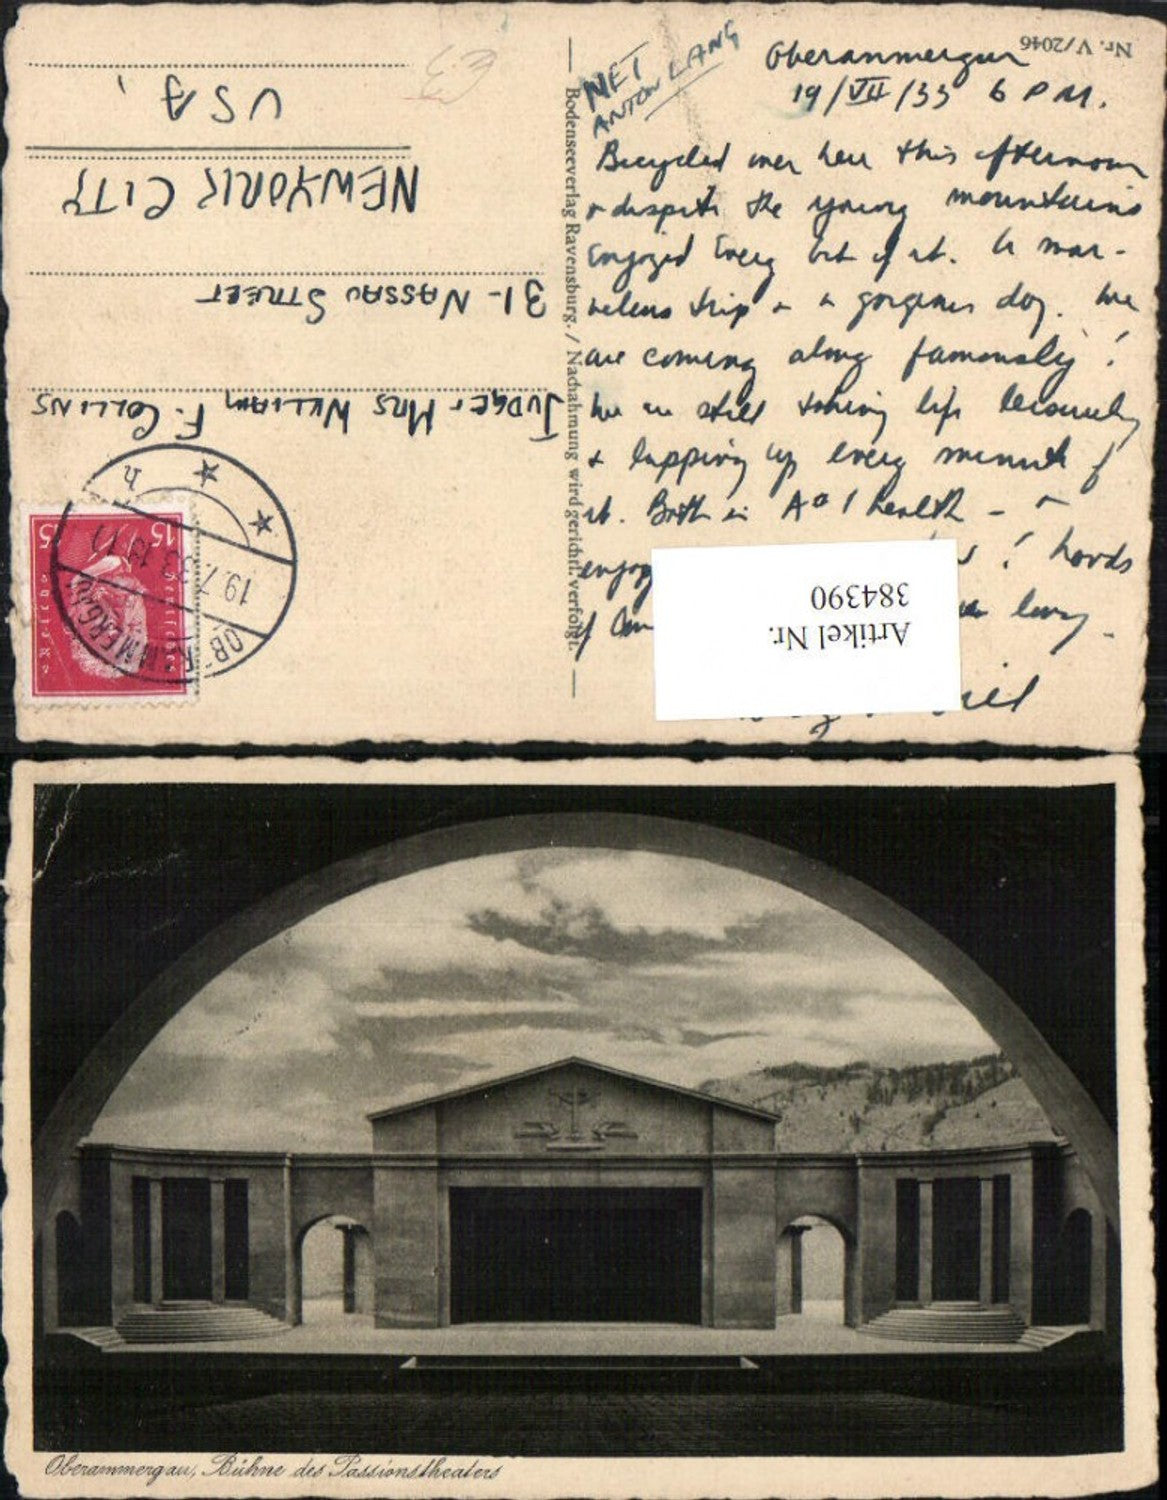 Nr. V/2046
Oberammergau
19/VII/33 6 P M.
MET
ANTON LANG
Bicycled over here this afternoon
& despite the young mountains
enjoyed every bit of it. A mar-
velous trip & a gorgeous day. We
are coming along famously!
We are still taking life leisurely
& lapping up every minute of
it. Both in A#1 health - &
enjoy ! Loads
of love
Bodenseeverlag Ravensburg. / Nachahmung wird gerichtl. verfolgt.
JUDGE & MRS WILLIAM F. COLLINS
31- NASSAU STREET
NEW YORK CITY
USA,
15 15
Deutsches Reich
OBERAMMERGAU
19.7.33. 18-19
h
Artikel Nr.
384390
Oberammergau, Bühne des Passionstheaters